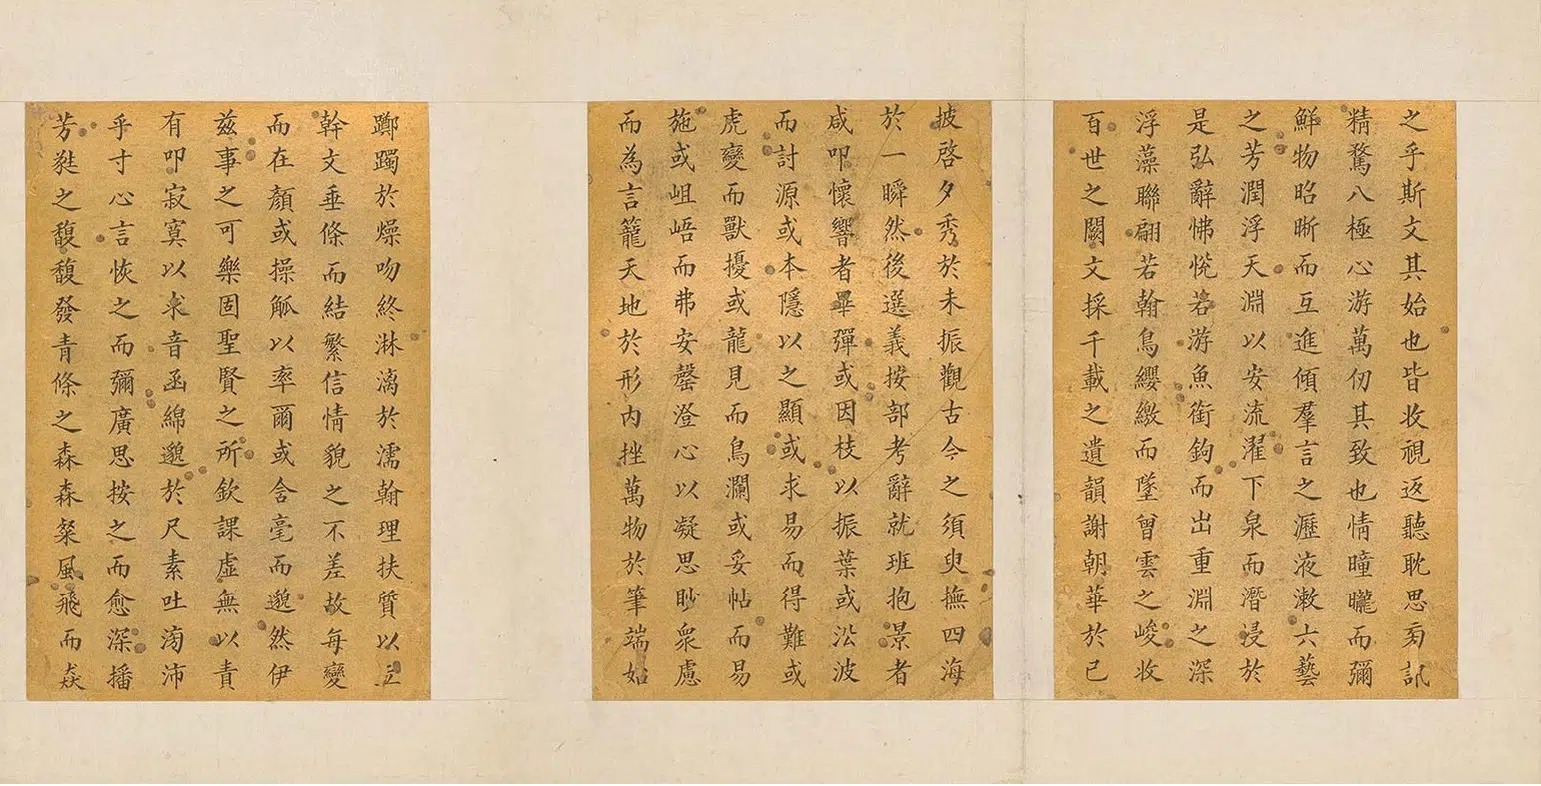 之乎斯文其始也皆收視返聽耽思旁訊
精騖八極心游萬仞其致也情曈曨而彌
鮮物昭晰而互進傾羣言之瀝液漱六藝
之芳潤浮天淵以安流濯下泉而潛浸於
是弘辭怫悅若游魚銜鉤而出重淵之深
浮藻聯翩若翰鳥纓繳而墜曾雲之峻收
百世之闕文採千載之遺韻謝朝華於已
披啓夕秀於未振觀古今之須臾撫四海
於一瞬然後選義按部考辭就班抱景者
咸叩懷響者畢彈或因枝以振葉或沿波
而討源或本隱以之顯或求易而得難或
虎變而獸擾或龍見而鳥瀾或妥帖而易
施或岨峿而弗安罄澄心以凝思眇衆慮
而為言籠天地於形內挫萬物於筆端始
躑躅於燥吻終淋漓於濡翰理扶質以立
幹文垂條而結繁信情貌之不差故每變
而在顏或操觚以率爾或含毫而邈然伊
兹事之可樂固聖賢之所欽課虛無以責
有叩寂寞以求音函綿邈於尺素吐滂沛
乎寸心言恢之而彌廣思按之而愈深播
芳蕤之馥馥發青條之森森粲風飛而猋